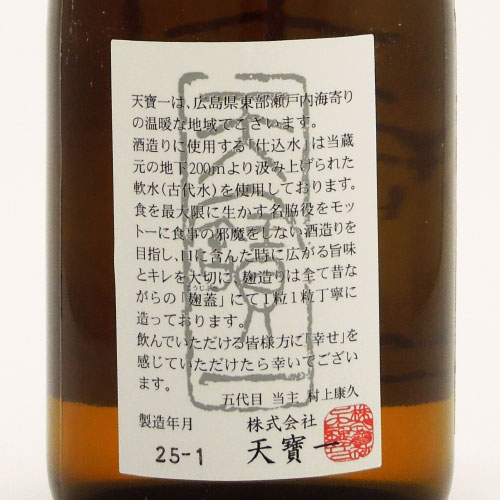 天寶一は、広島県東部瀬戸内海寄り
の温暖な地域でございます。
酒造りに使用する「仕込水」は当蔵
元の地下200mより汲み上げられた
軟水(古代水)を使用しております。
食を最大限に生かす名脇役をモッ
トーに食事の邪魔をしない酒造りを
目指し、口に含んだ時に広がる旨味
とキレを大切に、麹造りは全て昔な
がらの「麹蓋」にて1粒1粒丁寧に
こうじぶた
造っております。
飲んでいただける皆様方に「幸せ」を
感じていただけたら幸いでござい
ます。
五代目 当主 村上康久
製造年月
25-1
株式会社
天寶一